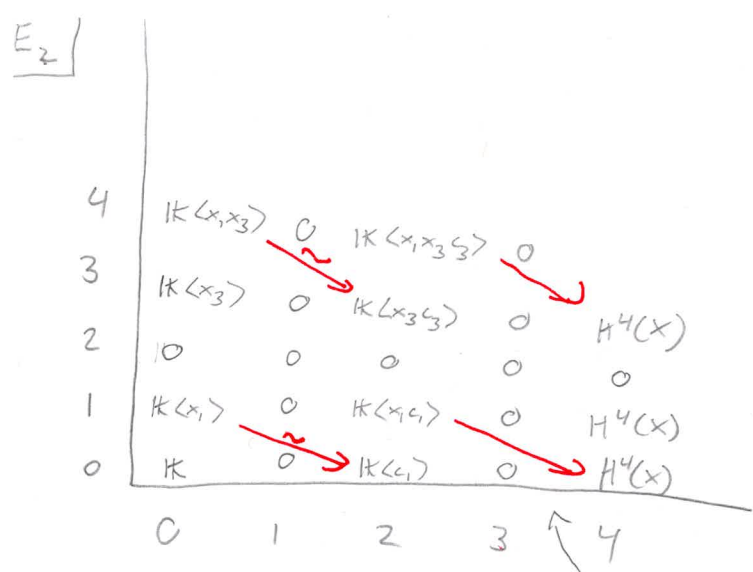 E₂
4 𝕂⟨x₁x₃⟩ 0 𝕂⟨x₁x₃c₃⟩ 0
~
3 𝕂⟨x₃⟩ 0 𝕂⟨x₃c₃⟩ 0 H⁴(X)
2 0 0 0 0 0
1 𝕂⟨x₁⟩ 0 𝕂⟨x₁c₁⟩ 0 H⁴(X)
~
0 𝕂 0 𝕂⟨c₁⟩ 0 H⁴(X)
0 1 2 3 4